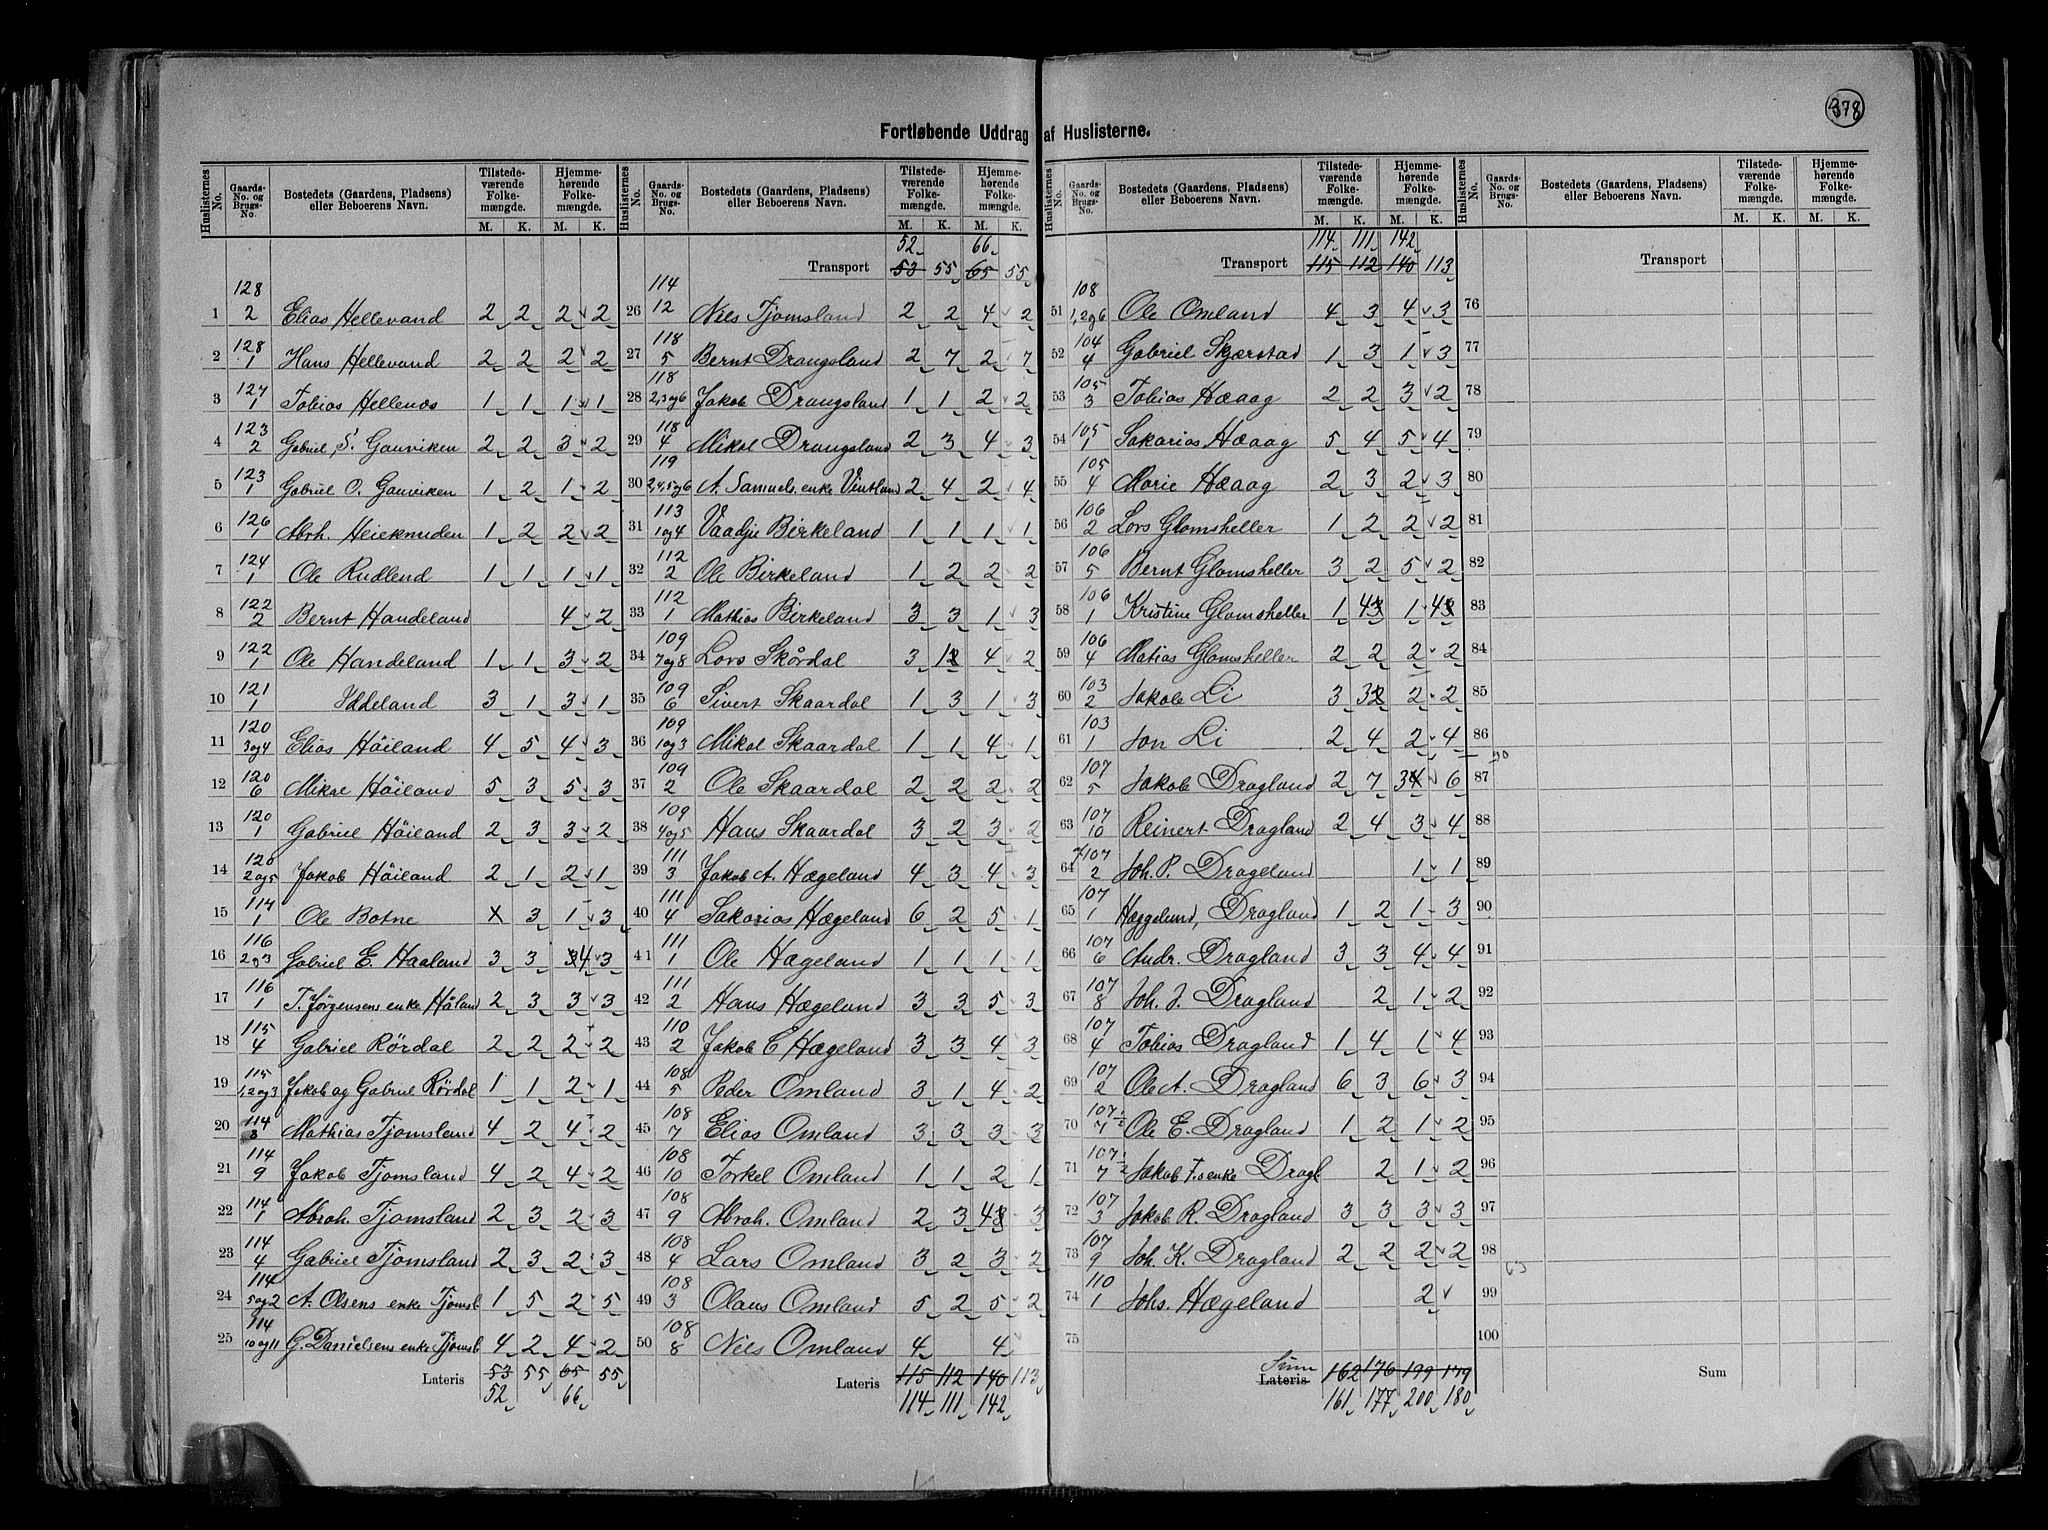 378
Fortløbende Uddrag af Huslisterne.
Huslisternes No. | Gaards-No. og Brugs-No. | Bostedets (Gaardens, Pladsens) eller Beboerens Navn. | Tilstedeværende Folkemængde. M. K. | Hjemmehørende Folkemængde. M. K.
1 | 128 2 | Elias Hellevand | 2 | 2 | 2 | 2
2 | 128 1 | Hans Hellevand | 2 | 2 | 2 | 2
3 | 127 1 | Tobias Hellenos | 1 | 1 | 1 | 1
4 | 123 2 | Gabriel S. Gauviken | 2 | 2 | 3 | 2
5 | 123 1 | Gabriel O. Gauviken | 1 | 2 | 1 | 2
6 | 126 1 | Abrh. Heieknuden | 1 | 2 | 2 | 2
7 | 124 1 | Ole Rudlend | 1 | 1 | 1 | 1
8 | 122 2 | Bernt Handeland | | | 4 | 2
9 | 122 1 | Ole Handeland | 1 | 1 | 3 | 2
10 | 121 1 | Iddeland | 3 | 1 | 3 | 1
11 | 120 3og4 | Elias Höiland | 4 | 5 | 4 | 3
12 | 120 6 | Mikal Höiland | 5 | 3 | 5 | 3
13 | 120 1 | Gabriel Höiland | 2 | 3 | 3 | 2
14 | 120 2og5 | Jakob Höiland | 2 | 1 | 2 | 1
15 | 114 1 | Ole Botne | X | 3 | 1 | 3
16 | 116 2og3 | Gabriel E. Haaland | 3 | 3 | 4 | 3
17 | 116 1 | T. Jørgensens enke Håland | 2 | 3 | 3 | 3
18 | 115 4 | Gabriel Rördal | 2 | 2 | 2 | 2
19 | 115 1,2og3 | Jakob og Gabriel Rördal | 1 | 1 | 2 | 1
20 | 114 8 | Mathias Tjomsland | 4 | 2 | 4 | 2
21 | 114 9 | Jakob Tjomsland | 4 | 2 | 4 | 2
22 | 114 1 | Abrah. Tjomsland | 2 | 3 | 2 | 3
23 | 114 4 | Gabriel Tjomsland | 2 | 3 | 2 | 3
24 | 114 5og2 | A. Olsens enke Tjomsl | 1 | 5 | 2 | 5
25 | 114 10og11 | G. Danielsens enke Tjomsl | 4 | 2 | 4 | 2
Lateris | 53 | 55 | 65 | 55
52 | 66
Huslisternes No. | Gaards-No. og Brugs-No. | Bostedets (Gaardens, Pladsens) eller Beboerens Navn. | Tilstedeværende Folkemængde. M. K. | Hjemmehørende Folkemængde. M. K.
52 | 66
Transport | 53 | 55 | 65 | 55
26 | 114 12 | Nils Tjomsland | 2 | 2 | 4 | 2
27 | 118 5 | Bernt Drangsland | 2 | 7 | 2 | 7
28 | 118 2,3og6 | Jakob Drangsland | 1 | 1 | 2 | 2
29 | 118 4 | Mikal Drangsland | 2 | 3 | 4 | 3
30 | 119 2,4,5og6 | A. Samuels. enke Vintland | 2 | 4 | 2 | 4
31 | 113 1og4 | Vaadje Birkeland | 1 | 1 | 1 | 1
32 | 112 2 | Ole Birkeland | 1 | 2 | 2 | 2
33 | 112 1 | Mathias Birkeland | 3 | 3 | 1 | 3
34 | 109 7og8 | Lars Skårdal | 3 | 1 | 4 | 2
35 | 109 6 | Sivert Skaardal | 1 | 3 | 1 | 3
36 | 109 1og3 | Mikal Skaardal | 1 | 1 | 4 | 1
37 | 109 2 | Ole Skaardal | 2 | 2 | 2 | 2
38 | 109 4og5 | Hans Skaardal | 3 | 2 | 3 | 2
39 | 111 3 | Jakob A. Hægeland | 4 | 3 | 4 | 3
40 | 111 4 | Sakarias Hægeland | 6 | 2 | 5 | 1
41 | 111 1 | Ole Hægeland | 1 | 1 | 1 | 1
42 | 111 2 | Hans Hægeland | 3 | 3 | 5 | 3
43 | 110 2 | Jakob C Hægeland | 3 | 3 | 4 | 3
44 | 108 5 | Peder Omland | 3 | 1 | 4 | 2
45 | 108 7 | Elias Omland | 3 | 3 | 3 | 3
46 | 108 10 | Torkel Omland | 1 | 1 | 2 | 1
47 | 108 9 | Abrah. Omland | 2 | 3 | 4 | 3
48 | 108 4 | Lars Omland | 3 | 2 | 3 | 2
49 | 108 3 | Olaus Omland | 5 | 2 | 5 | 2
50 | 108 8 | Nils Omland | 4 | | 4
Lateris | 115 | 112 | 140 | 113
114 | 111 | 142
Huslisternes No. | Gaards-No. og Brugs-No. | Bostedets (Gaardens, Pladsens) eller Beboerens Navn. | Tilstedeværende Folkemængde. M. K. | Hjemmehørende Folkemængde. M. K.
114 | 111 | 142
Transport | 115 | 112 | 140 | 113
51 | 108 1,2og6 | Ole Omland | 4 | 3 | 4 | 3
52 | 104 4 | Gabriel Skjerstad | 1 | 3 | 1 | 3
53 | 105 3 | Tobias Hæaag | 2 | 2 | 3 | 2
54 | 105 1 | Sakarias Hæaag | 5 | 4 | 5 | 4
55 | 105 4 | Marie Hæaag | 2 | 3 | 2 | 3
56 | 106 2 | Lars Glomsheller | 1 | 2 | 2 | 2
57 | 106 5 | Bernt Glomsheller | 3 | 2 | 5 | 2
58 | 106 1 | Kristine Glomsheller | 1 | 4 | 1 | 4
59 | 106 4 | Matias Glomsheller | 2 | 2 | 2 | 2
60 | 103 2 | Jakob Li | 3 | 3 | 2 | 2
61 | 103 1 | Jon Li | 2 | 4 | 2 | 4
62 | 107 5 | Jakob Dragland | 2 | 7 | 3 | 6
63 | 107 10 | Reinert Dragland | 2 | 4 | 3 | 4
64 | 107 2 | Joh. P. Drageland | | | 1 | 1
65 | 107 1 | Dragland | 1 | 2 | 1 | 3
66 | 107 6 | Andr. Dragland | 3 | 3 | 4 | 4
67 | 107 8 | Joh. J. Dragland | | 2 | 1 | 2
68 | 107 4 | Tobias Dragland | 1 | 4 | 1 | 4
69 | 107 2 | Ole A. Dragland | 6 | 3 | 6 | 3
70 | 107 7 1/2 | Ole E. Dragland | 1 | 2 | 1 | 2
71 | 107 7 1/2 | Jakob T.s enke Dragl | | 2 | 1 | 2
72 | 107 3 | Jakob R. Dragland | 3 | 3 | 3 | 3
73 | 107 9 | Joh. K. Dragland | 2 | 2 | 2 | 2
74 | 110 1 | Johs. Hægeland | | | 2
75
Sum
Lateris | 162 | 176 | 199 | 179
161 | 177 | 200 | 180
Huslisternes No. | Gaards-No. og Brugs-No. | Bostedets (Gaardens, Pladsens) eller Beboerens Navn. | Tilstedeværende Folkemængde. M. K. | Hjemmehørende Folkemængde. M. K.
Transport
76
77
78
79
80
81
82
83
84
85
86
87
88
89
90
91
92
93
94
95
96
97
98
99
100
Sum